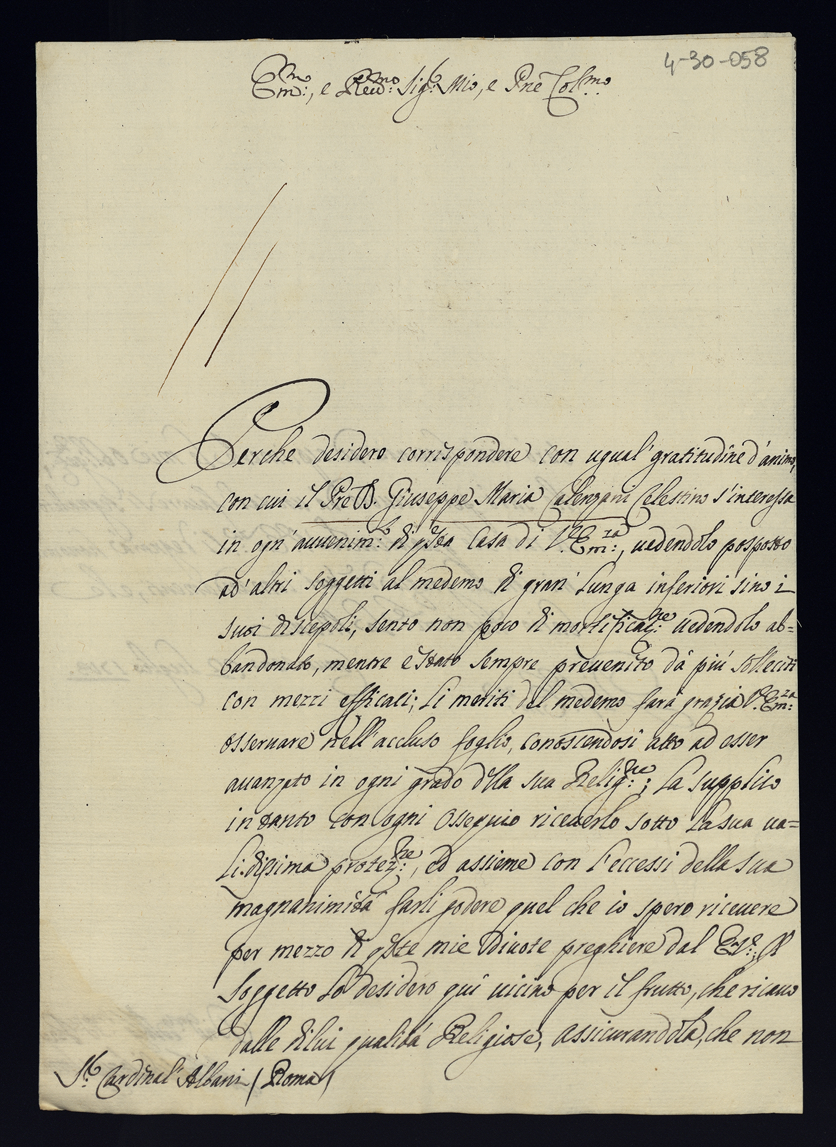 4-30-058
Em.mo, e Reu.mo Sig.r Mio, e Pne Col.mo
Perche desidero corrispondere con ugual' gratitudine d'animo,
con cui il Pre D. Giuseppe Maria Calenzani Celestino s'interessa
in ogn' auuenim.to di q'sta Casa di V. Em.za, uedendolo posposto
ad' altri soggetti al medemo di gran' lunga inferiori sino i
suoi discepoli, sento non poco di mortificaz.ne uedendolo ab=
bandonato, mentre e stato sempre preuenuto dà più solleciti
con mezzi efficaci; Li meriti del medemo farà grazia V. Em.za
osseruare nell' accluso foglio, conoscendosi atto ad esser
auanzato in ogni grado d'lla sua Relig.ne; La supplico
in tanto con ogni ossequio riceuerlo sotto La sua ua=
lidissima protez.ne, ed assieme con l'eccessi della sua
magnanimità farli godere quel che io spero riceuere
per mezzo di q'ste mie diuote preghiere dal
soggetto Lo desidero quì uicino per il frutto, che ricauo
dalle di lui qualità Religiose, assicurandola, che non
S.r Cardinal' Albani (Roma)